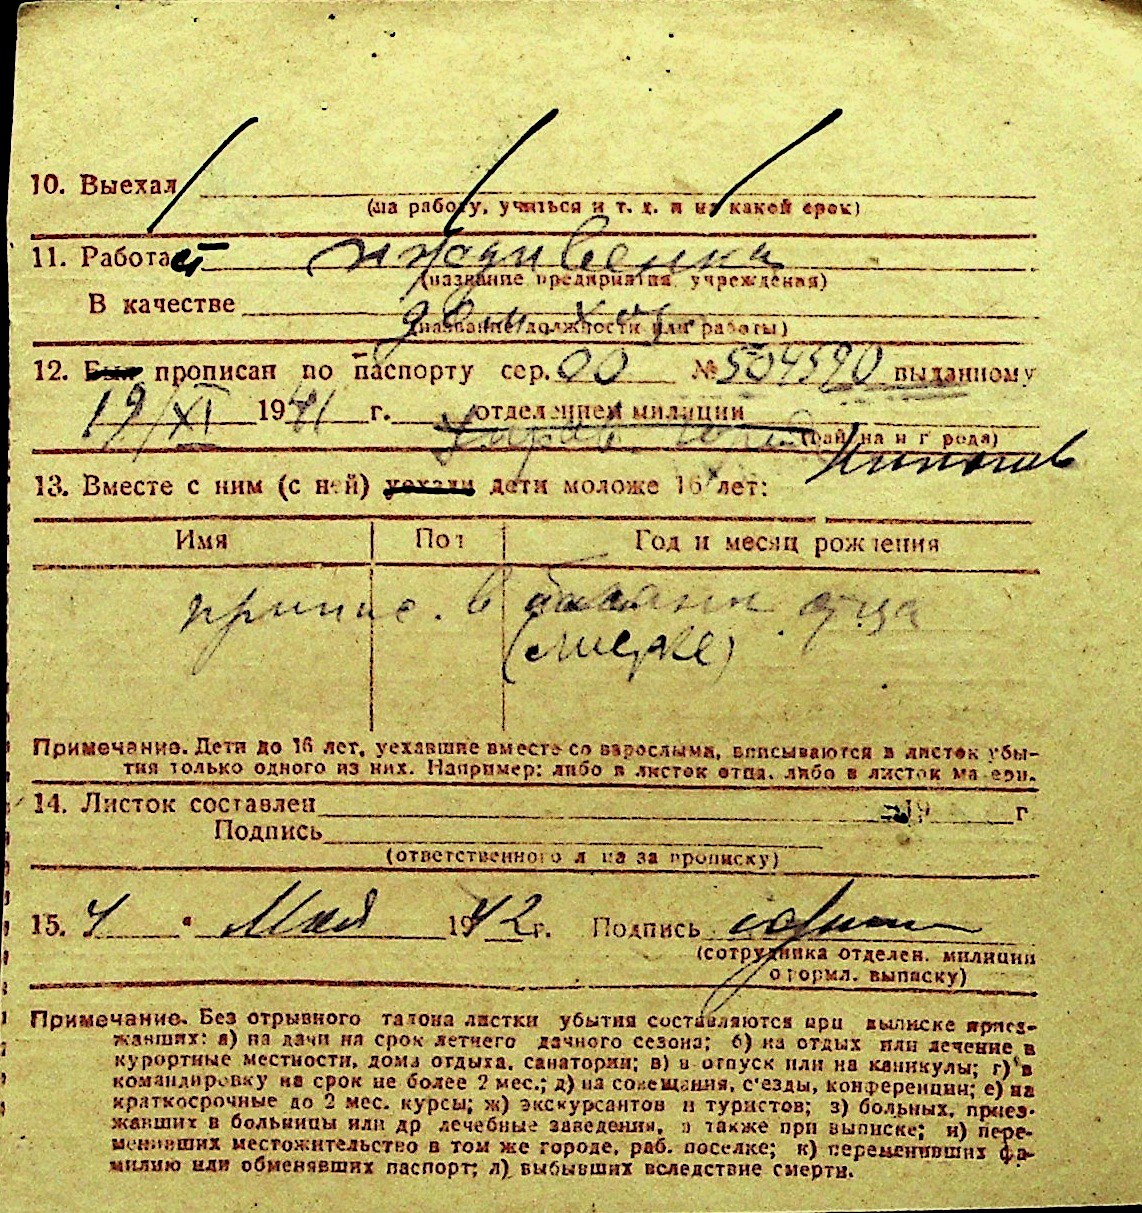 10. Выехал
(на работу, учиться и т. д. и на какой срок)
11. Работает иждивенка
(название предприятия, учреждения)
В качестве дом хоз
(название должности или работы)
12. Был прописан по паспорту сер. 00 № 504590 выданному
19/XI 1941 г. отделением милиции
(района и города)
13. Вместе с ним (с ней) уехали дети моложе 16 лет:
Имя Пол Год и месяц рождения
припис. в отца
Примечание. Дети до 16 лет, уехавшие вместе со взрослыми, вписываются в листок убы-
тия только одного из них. Например: либо в листок отца, либо в листок матери.
14. Листок составлен 19 г
Подпись
(ответственного лица за прописку)
15. 4 " Мая 1942 г. Подпись
(сотрудника отделен. милиции
оформл. выписку)
Примечание. Без отрывного талона листки убытия составляются при выписке приез-
жавших: а) на дачи на срок летнего дачного сезона; б) на отдых или лечение в
курортные местности, дома отдыха, санатории; в) в отпуск или на каникулы; г) в
командировку на срок не более 2 мес.; д) на совещания, с'езды, конференции; е) на
краткосрочные до 2 мес. курсы; ж) экскурсантов и туристов; з) больных, приез-
жавших в больницы или др лечебные заведения, а также при выписке; и) пере-
менивших местожительство в том же городе, раб. поселке; к) переменивших фа-
милию или обменявших паспорт; л) выбывших вследствие смерти.